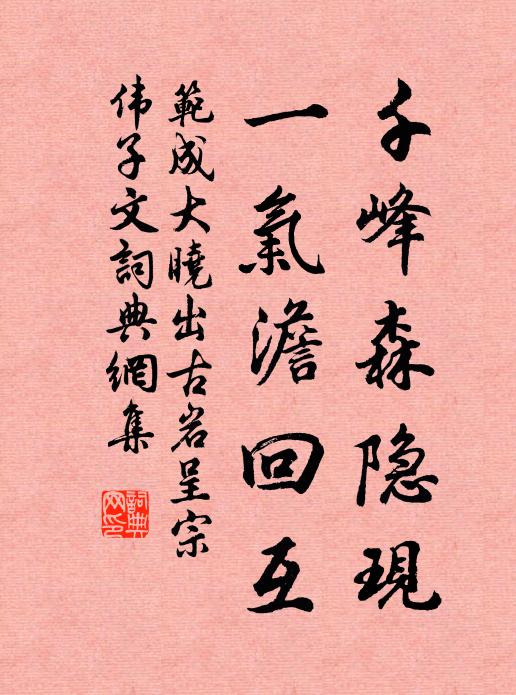 千峰森隐現
一氣澹回互
範成大曉出古岩呈宗
伟子文詞典網集
詞典
网印